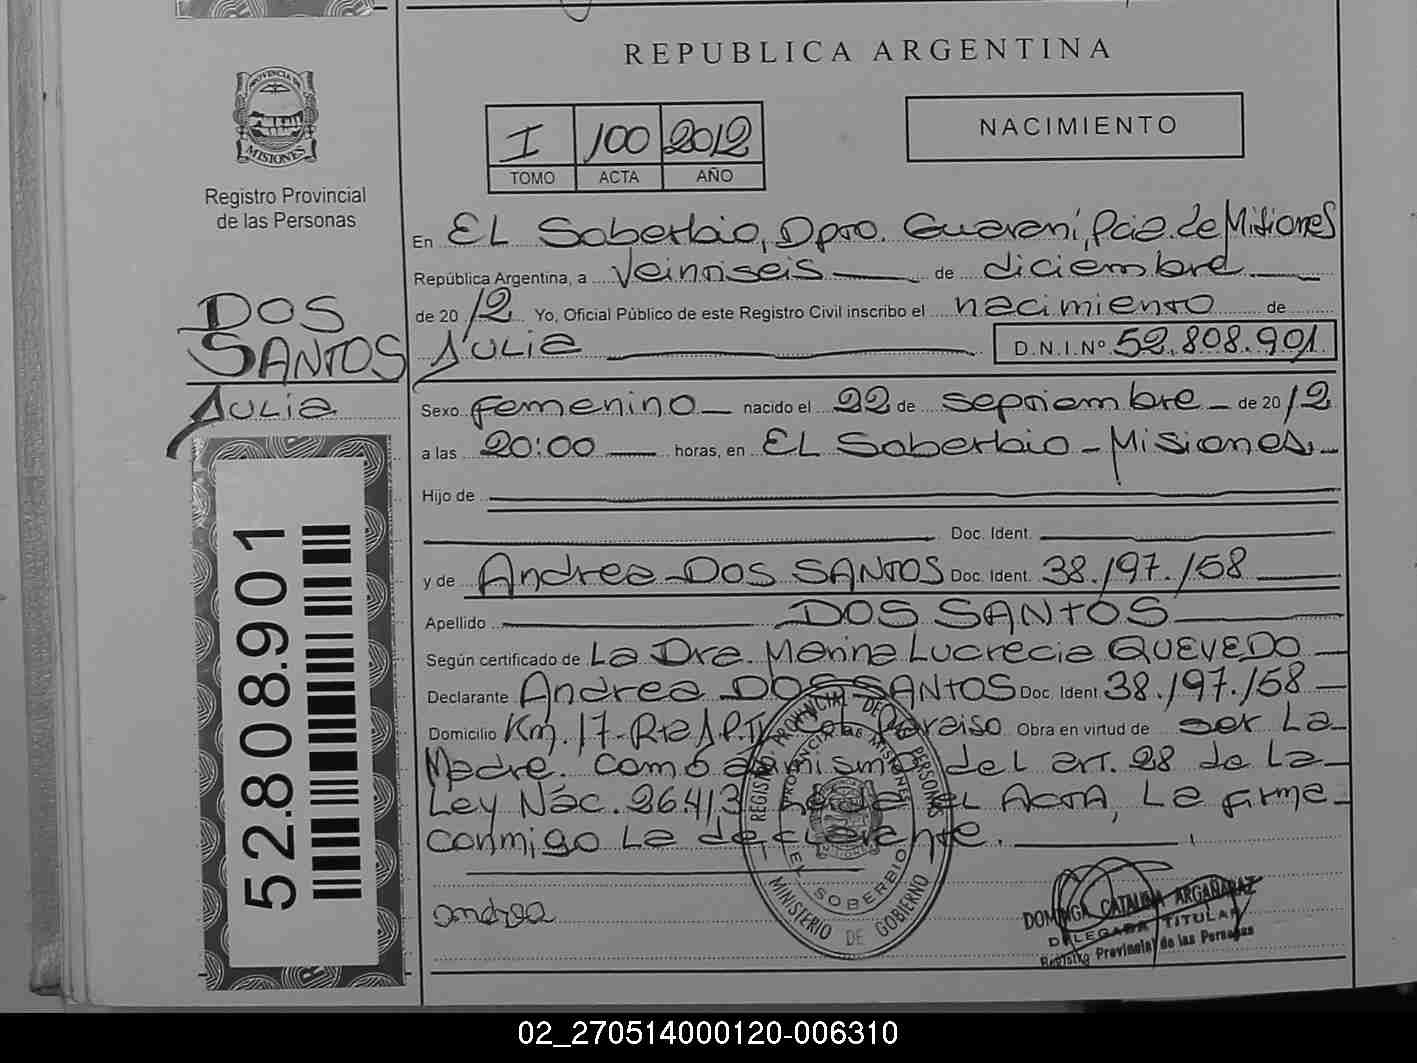 REPUBLICA ARGENTINA
PROVINCIA DE
MISIONES
Registro Provincial
de las Personas
I 100 2012
TOMO ACTA AÑO
NACIMIENTO
En EL Soberbio, Dpto. Guaraní, Pcia. de Misiones
República Argentina, a veintiseis de diciembre
de 2012 Yo, Oficial Público de este Registro Civil inscribo el nacimiento de
Julia D.N.I.Nº 52.808.901
DOS
SANTOS
Julia
Sexo Femenino nacido el 22 de septiembre de 2012
a las 20:00 horas, en EL Soberbio - Misiones.
Hijo de
Doc. Ident.
y de Andrea DOS SANTOS Doc. Ident. 38.197.158
Apellido DOS SANTOS
Según certificado de La Dra. Marina Lucrecia QUEVEDO
Declarante Andrea DOS SANTOS Doc. Ident 38.197.158
Domicilio Km. 17- Rta Paraiso Obra en virtud de ser La
Madre. Como asimismo del art. 28 de La
Ley Nac. 26.413 EL ACTA, La firma
conmigo La declarante.
andrea
REGISTRO PROVINCIAL DE LAS PERSONAS
PROVINCIA DE MISIONES
EL SOBERBIO
MINISTERIO DE GOBIERNO
DOMINGA CATALINA ARGAÑARAZ
DELEGADA TITULAR
Registro Provincial de las Personas
52.808.901
02_270514000120-006310